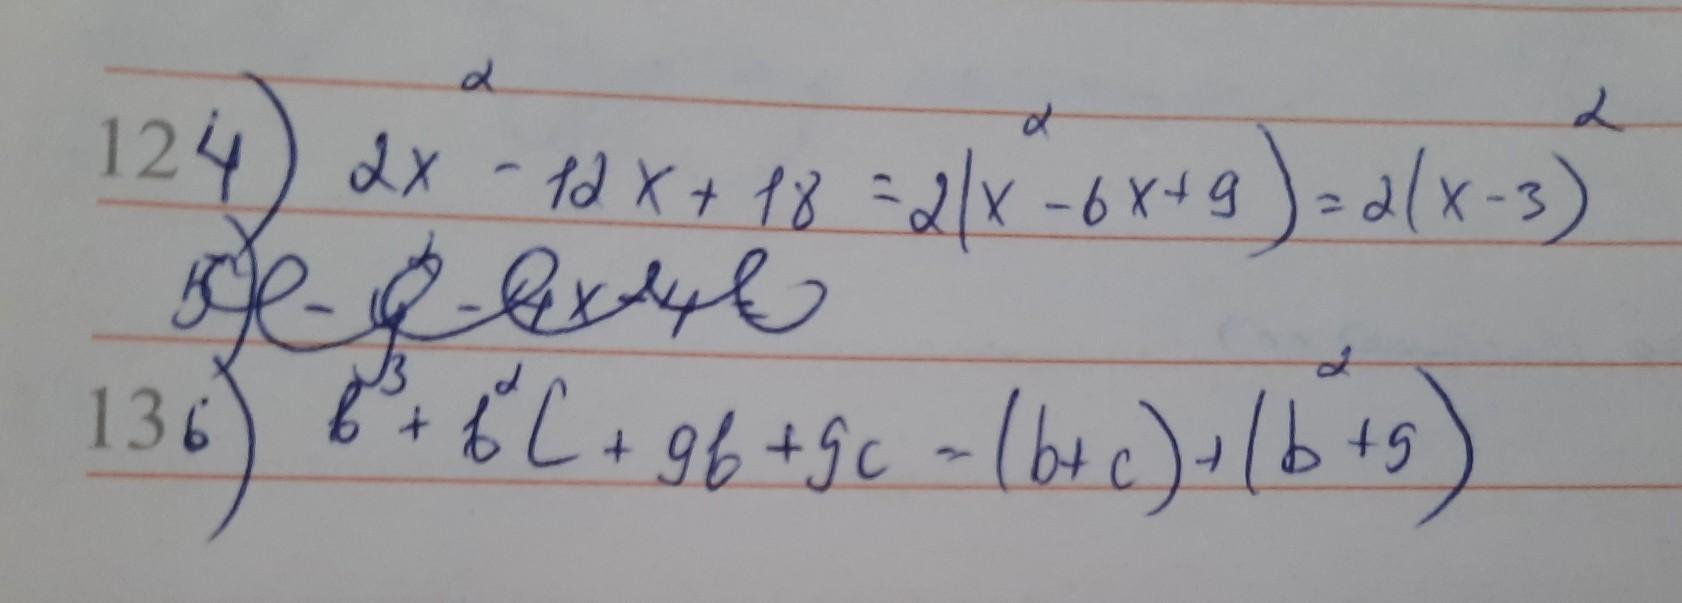 12 4) 2x² - 12x + 18 = 2(x² - 6x + 9) = 2(x - 3)²
5)
13 6) b³ + b²c + 9b + 9c - (b + c) + (b² + 9)